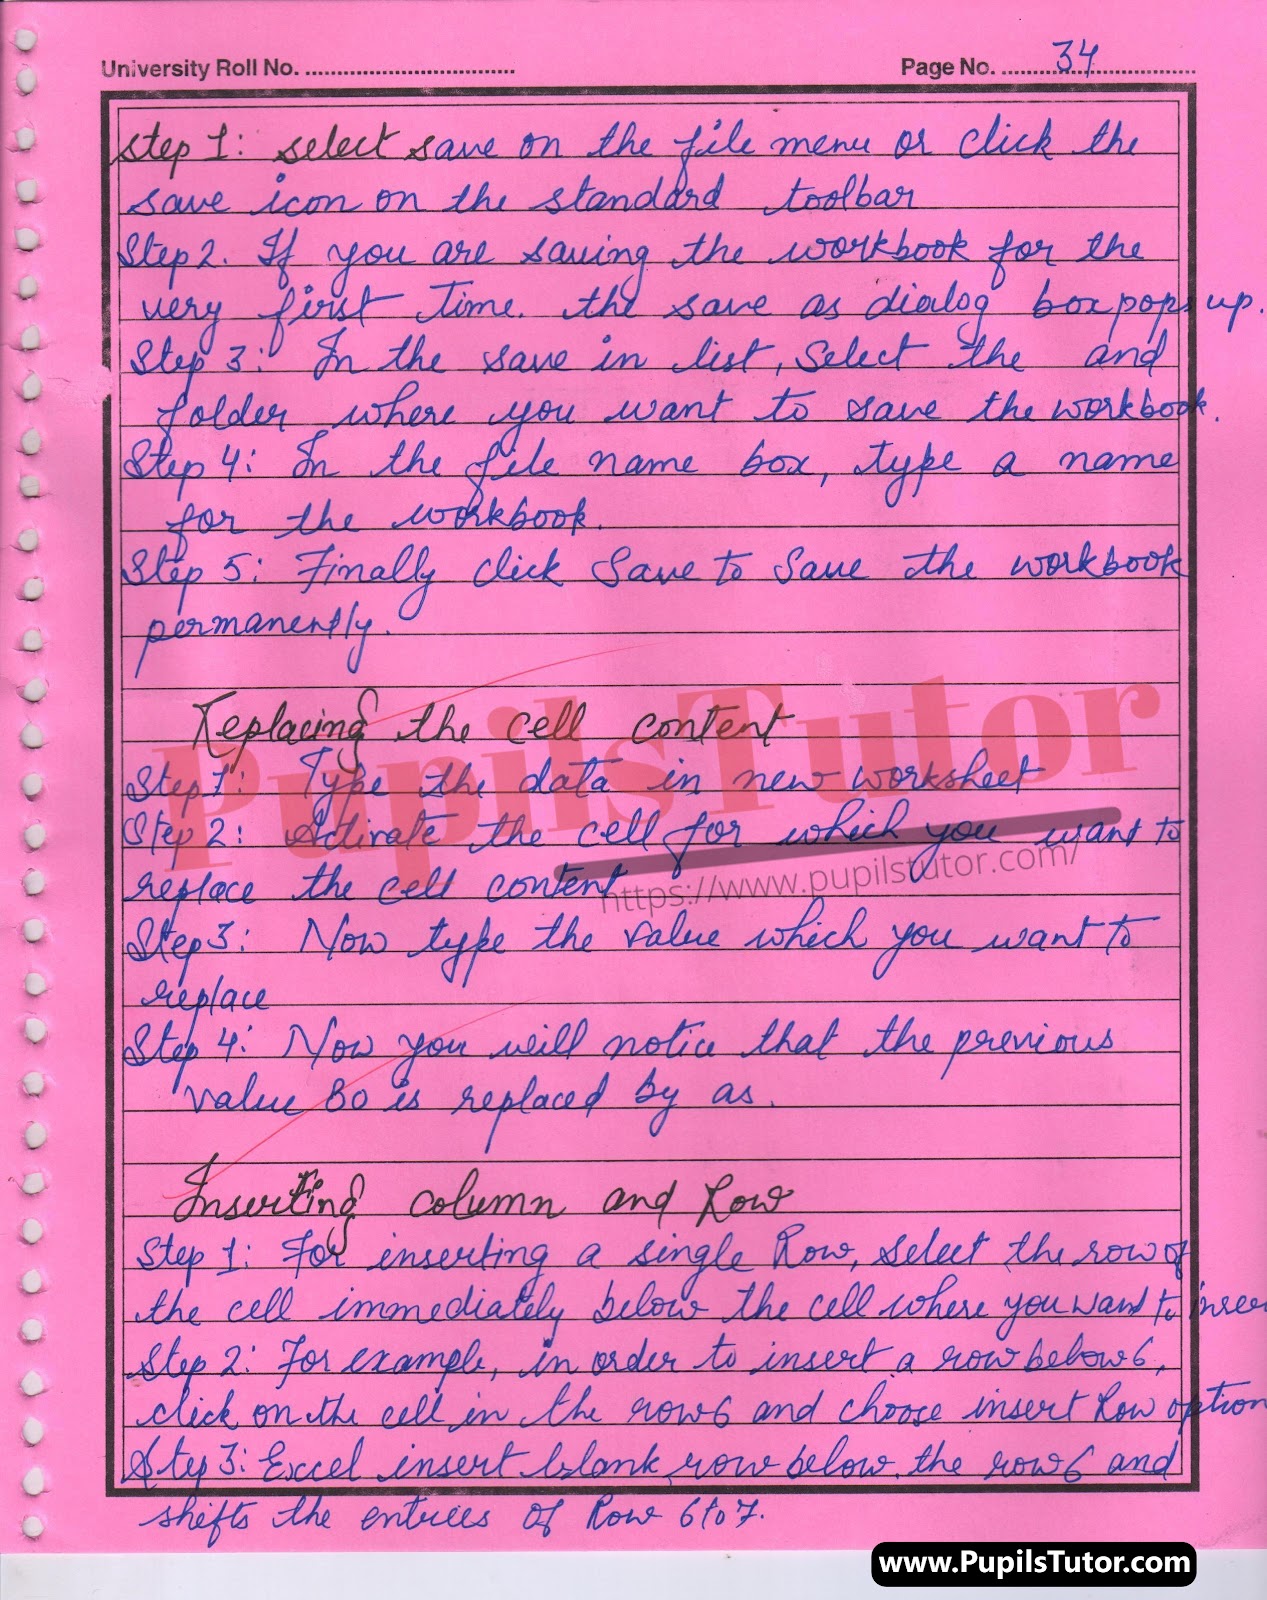 University Roll No. ................................. Page No. ........34................
Step 1: select save on the file menu or click the
save icon on the standard toolbar
Step 2. If you are saving the workbook for the
very first Time. the save as dialog box pops up.
Step 3: In the save in list, Select the and
folder where you want to save the workbook.
Step 4: In the file name box, type a name
for the workbook.
Step 5: Finally click Save to Save the workbook
permanently.
Replacing the cell content
Step 1: Type the data in new worksheet
Step 2: Activate the cell for which you want to
replace the cell content
Step 3: Now type the value which you want to
replace
Step 4: Now you will notice that the previous
value 80 is replaced by as.
Inserting column and Row
Step 1: For inserting a single Row, select the row of
the cell immediately below the cell where you want to inser
Step 2: For example, in order to insert a row below 6,
click on the cell in the row 6 and choose insert Row option
Step 3: Excel insert blank row below the row 6 and
shifts the entries of Row 6 to 7.
PupilsTutor
https://www.pupilstutor.com/
www.PupilsTutor.com